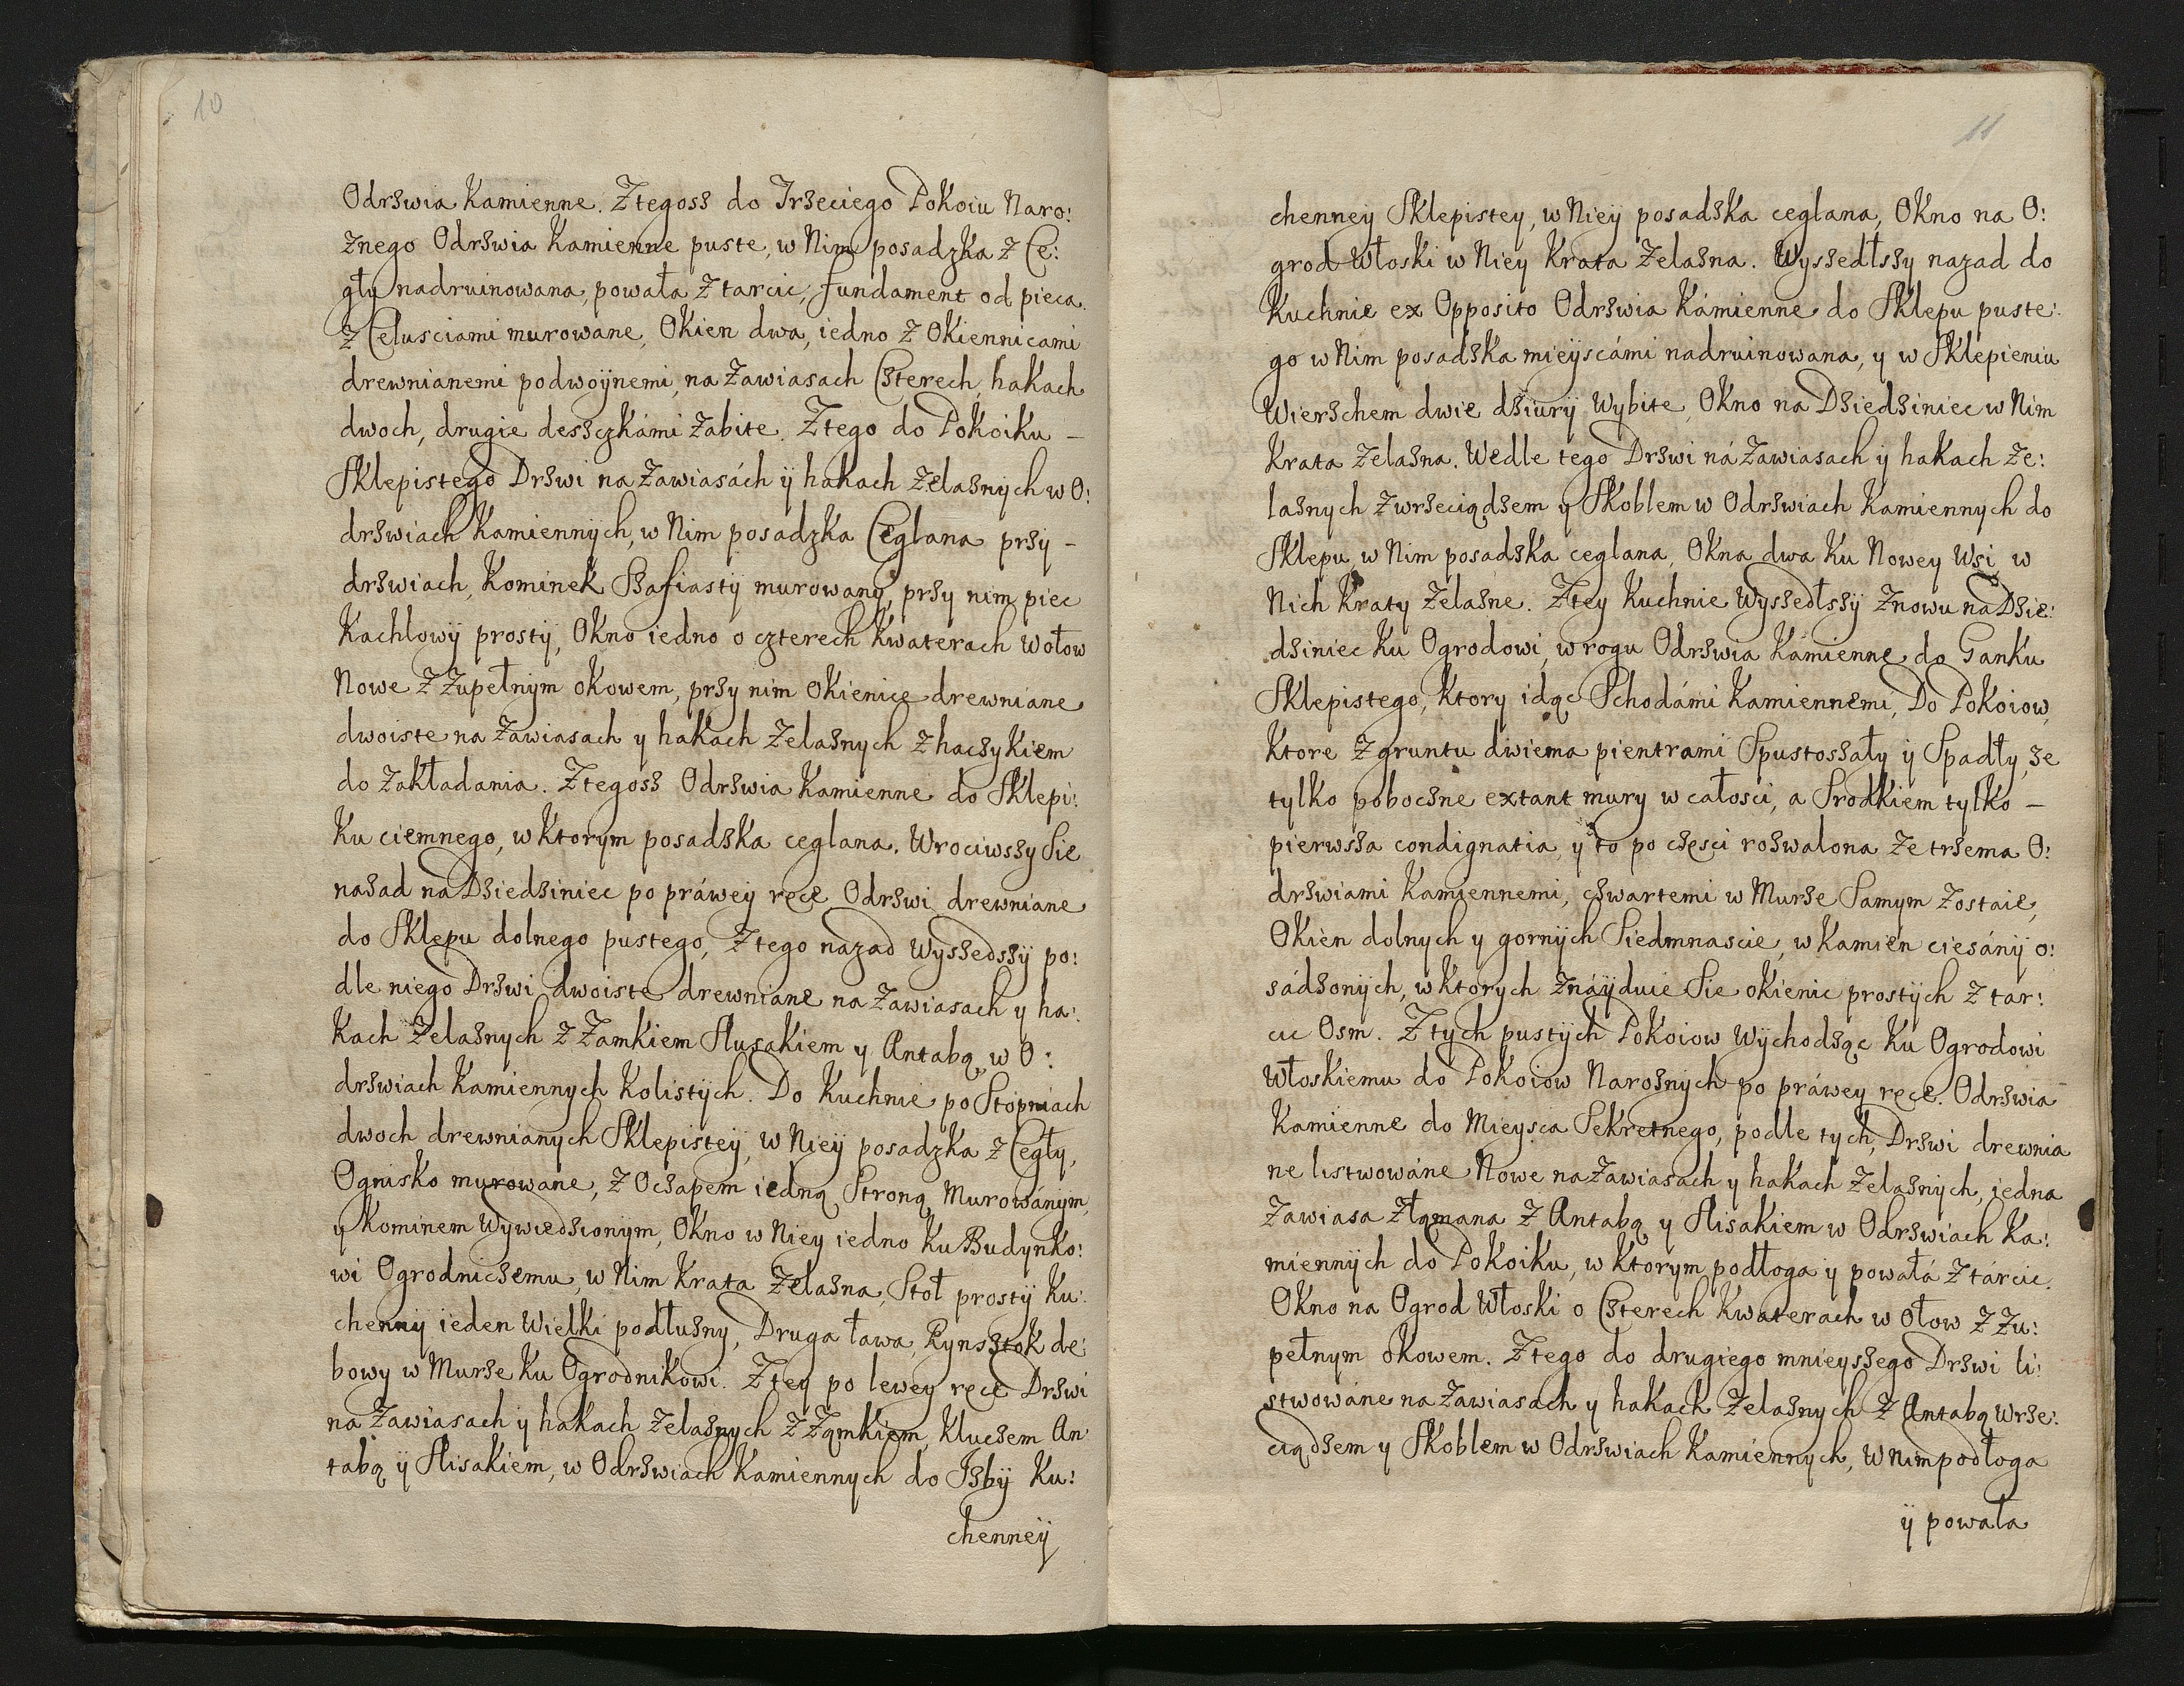 10
Odrzwia Kamienne. Ztegosz do Trzeciego Pokoiu Naro:
znego Odrzwia Kamienne puste, w Nim posadzka z Ce:
gły nadruinowana, powała z tarcic, fundament od pieca
z Celusciami murowane, Okien dwa, iedno z Okiennicami
drewnianemi podwoÿnemi, na Zawiasach Czterech, hakach
dwoch, drugie deszczkámi Zabite. Ztego do Pokoiku –
Sklepistego Drzwi na Zawiasách ÿ hakach Zelaznÿch w O:
drzwiach Kamiennÿch, w Nim posadzka Ceglana przy –
drzwiach, Kominek Szafiastÿ murowanÿ, przy nim piec
Kachlowÿ prostÿ, Okno iedno o czterech Kwaterach w ołow
Nowe z Zupełnÿm okowem, przy nim Okienice drewniane
dwoiste na Zawiasach y hakach Zelaznych z haczykiem
do Zakładania. Ztegosz Odrzwia Kamienne do Sklepi:
ku ciemnego, w Ktorym posadzka ceglana. Wrociwszy Sie
nazad na Dziedziniec po práwey ręce Odrzwi drewniane
do Sklepu dolnego pustego, Ztego nazad Wyszedszÿ po:
dle niego Drzwi dwoiste drewniane na Zawiasach y ha:
kach Zelaznych z Zamkiem Slusakiem y Antabą, w O:
drzwiach Kamiennych Kolistÿch. Do Kuchnie po Stopniach
dwoch drewnianych Sklepisteÿ, w Nieÿ posadzka z Cegły,
Ognisko murowane, z Oczapem iedną Stroną Murowánym,
y Kominem Wywiedzionym, Okno w Niey iedno ku Budynko:
wi Ogrodniczemu, w Nim Krata Zelazna, Stoł prostÿ Ku:
chennÿ ieden Wielki podłuzny, Druga ława, Rynsztok de:
bowy w Murze Ku Ogrodnikowi. Ztey po lewey ręce Drzwi
na Zawiasach ÿ hakach Zelaznych z Zamkiem, Kluczem An:
tabą ÿ Slisakiem, w Odrzwiach Kamiennych do Izbÿ Ku:
chenneÿ
11
chenneÿ Sklepistey, w Nieÿ posadzka ceglana, Okno na O:
grod Włoski w Niey Krata Zelazna. Wyszedłszy nazad do
Kuchnie ex Opposito Odrzwia Kámienne do Sklepu puste:
go w Nim posadzka mieÿscámi nadruinowana, y w Sklepieniu
Wierzchem dwie dziurÿ Wybite, Okno na Dziedziniec w Nim
Krata Zelazna. Wedle tego Drzwi ná Zawiasach ÿ hakach Ze:
laznych z wrzeciądzem y Skoblem w Odrzwiach Kamiennych do
Sklepu, w Nim posadzka ceglana, Okna dwa Ku Nowey Wsi, w
Nich Kraty Zelazne. Ztey Kuchnie Wyszedłszÿ Znowu na Dzie:
dziniec Ku Ogrodowi, w rogu Odrzwia Kámienne do Ganku
Sklepistego, Ktory idąc Schodámi Kamiennemi, Do Pokoiow,
Ktore z gruntu dwiema pientrami Spustoszały ÿ Spadły, ze
tylko poboczne extant mury w całosci, a Srodkiem tylko –
pierwsza condignatia, y to po częsci rozwalona Ze trzema O:
drzwiami Kamiennemi, czwartemi w Murze Samym Zostaie,
Okien dolnych y gornÿch Siedmnascie, w Kamień ciesánÿ o:
sádzonÿch, w Ktorych Znáÿduie Sie okienic prostÿch z tar:
cic Osm. Z tych pustÿch Pokoiow Wychodząc Ku Ogrodowi
Włoskiemu do Pokoiow Naroznÿch po práwey ręce. Odrzwia
Kamienne do Mieysca Sekretnego, podle tych, Drzwi drewnia
ne listwowáne Nowe na Zawiasach y hakach Zelaznÿch, iedna
Zawiasa Złamana z Antabą y Slisakiem w Odrzwiach Ka:
miennÿch do Pokoiku, w Ktorym podłoga ÿ powałá z tárcic.
Okno na Ogrod Włoski o Czterech Kwaterach w Ołow z Zu:
pełnym okowem. Ztego do drugiego mnieyszego Drzwi li:
stwowáne na Zawiasach y hakach Zelaznych z Antabą wrze:
ciądzem y Skoblem w Odrzwiach Kamiennych, w Nim podłoga
ÿ powała